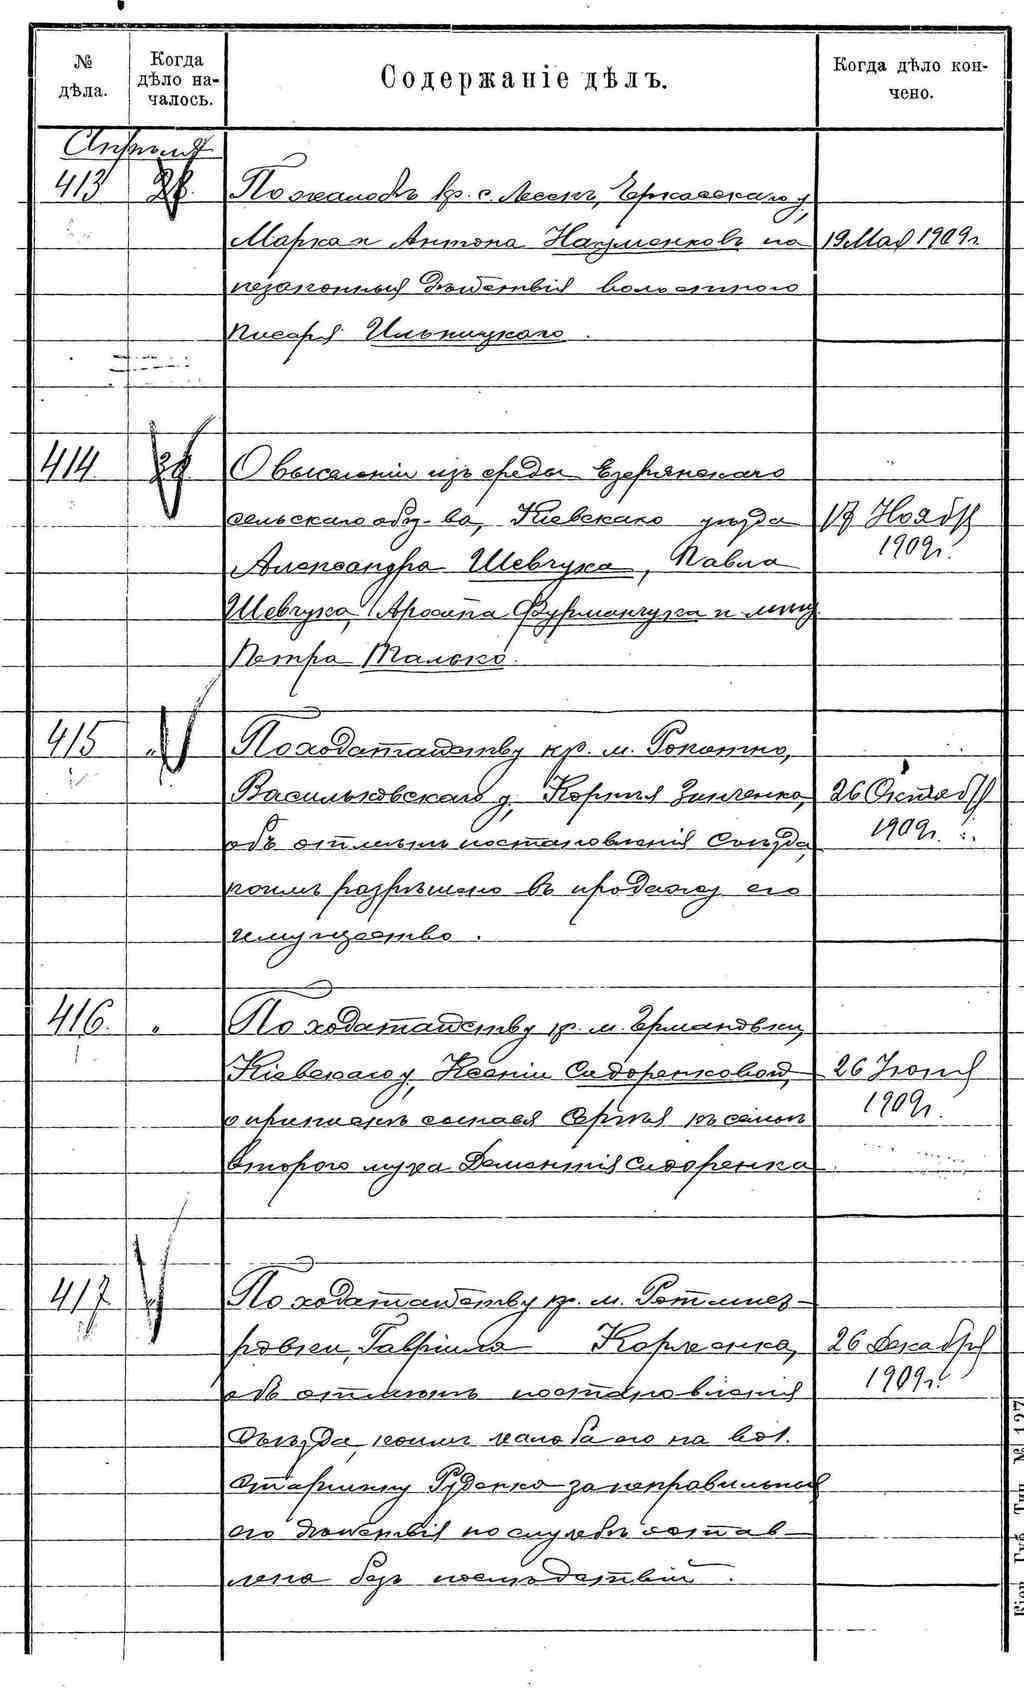 № дѣла.
Когда дѣло началось.
Содержаніе дѣлъ.
Когда дѣло кончено.
Апрѣля
413 28. По жалобѣ кр. с. Лесекъ, Черкасскаго у,
Марка и Антона Науменковъ на 19 Мая 1909 г.
незаконныя дѣйствія волостного
писаря Ильницкаго.
414. 30 О выселеніи изъ среды Езерянскаго
сельскаго общ-ва, Кіевскаго уѣзда 17 Ноября
Александра Шевчука, Павла 1909 г.
Шевчука, Фурманчука и мѣщ.
Петра Малько.
415 " По ходатайству кр. м. Рокитно,
Васильковскаго у, Корнѣя Зинченко, 26 Октября
объ отмѣнѣ постановленія Съѣзда, 1909 г.
коимъ разрѣшено въ продажу его
имущество.
416. " По ходатайству кр. м. Германовки,
Кіевскаго у, Ксеніи Сидоренковой, 26 Іюня
о припискѣ сына ея Сергѣя къ семьѣ 1909 г.
второго мужа Дементія Сидоренка
417 " По ходатайству кр. м. Ротмист-
ровки, Гавріила Корженка, 26 Декабря
объ отмѣнѣ постановленія 1909 г.
Съѣзда, коимъ жалоба его на вол.
старшину Руденко за неправильныя
его дѣйствія по службѣ остав-
лена безъ послѣдствій.
Кіев. Губ. Тип. № 127